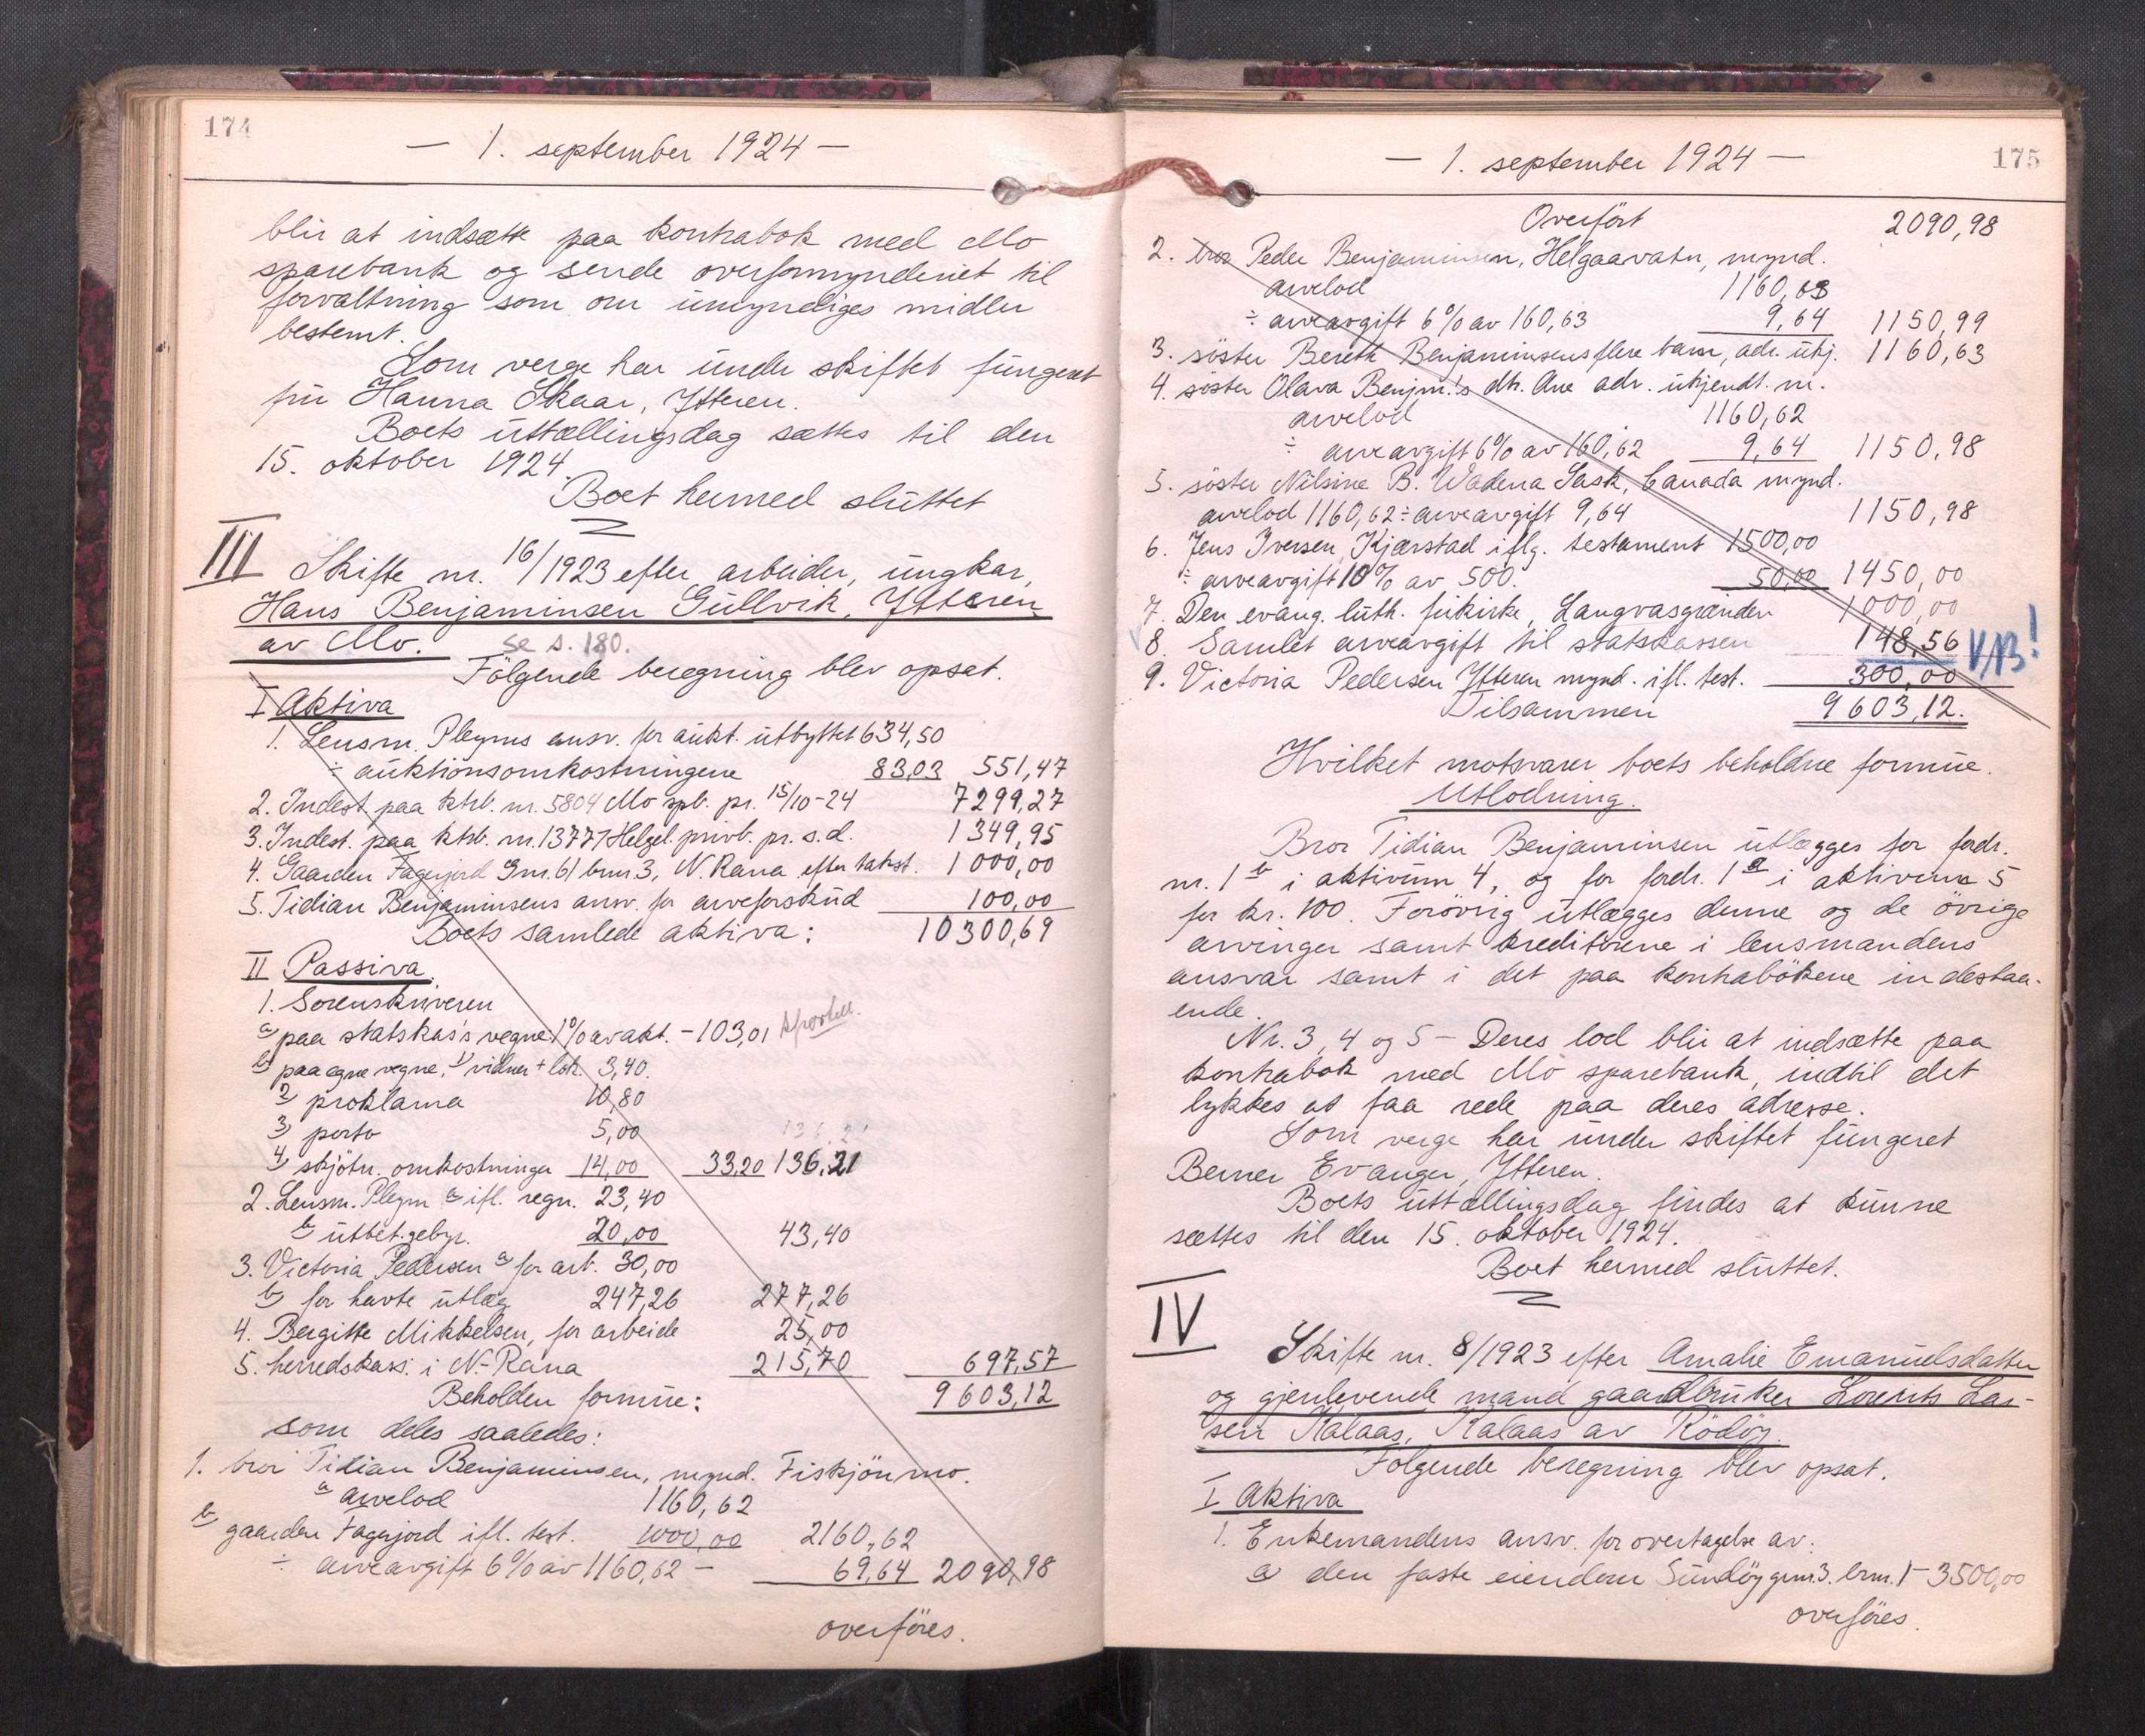 174
— 1. september 1924 —
blir at indsætte paa kontrabok med Mo
sparebank og sende overformynderiet til
forvaltning som om umyndiges midler
bestemt.
Som verge har under skiftet fungeret
fru Hanna Skaar, Ytteren.
Boets uttællingsdag sættes til den
15. oktober 1924.
Boet hermed sluttet
III
Skifte nr. 16/1923 efter arbeider, ungkar,
Hans Benjaminsen Gullvik, Ytteren
av Mo. se s. 180.
Følgende beregning blev opsat.
I Aktiva
1. Lensm. Pleyms ansv. for aukt. utbyttet 634,50
÷ auktionsomkostningene 83,03 551,47
2. Indest. paa ktrb. nr. 5804 Mo spb. pr. 15/10-24 7299,27
3. Indest. paa ktrb. nr. 13777 Helgel. privb. pr. s.d. 1349,95
4. Gaarden Fagerjord Gnr. 61 bnr. 3, N. Rana efter takst. 1000,00
5. Tidian Benjaminsens ansv. for arveforskud 100,00
Boets samlede aktiva: 10300,69
II Passiva.
1. Sorenskriveren
a) paa statskas's vegne 1% av akt. - 103,01
b) paa egne vegne, 1) vidner + lok. 3,40.
2) proklama 10,80
3) porto 5,00 136,21
4) skjøtn. omkostninger 14,00 33,20 136,21
2. Lensm. Pleym a) ifl. regn. 23,40
b) utbet. gebyr. 20,00 43,40
3. Victoria Pedersen a) for arb. 30,00
b) for havte utlæg 247,26 277,26
4. Bergitte Mikkelsen, for arbeide 25,00
5. herredskass. i N-Rana 215,70 697,57
Beholden formue: 9603,12
som deles saaledes:
1. bror Tidian Benjaminsen, mynd. Fiskjønmo.
a) arvelod 1160,62
b) gaarden Fagerjord ifl. test. 1000,00 2160,62
÷ arveavgift 6% av 1160,62 - 69,64 2090,98
overføres.
175
— 1. september 1924 —
Overført 2090,98
2. bror Peder Benjaminsen, Helgaavatn, mynd.
arvelod 1160,63
÷ arveavgift 6% av 160,63 9,64 1150,99
3. søster Bereth Benjaminsens flere barn, adr. ukj. 1160,63
4. søster Olava Benjm.'s dtr. Ane adr. ukjendt. m.
arvelod 1160,62
÷ arveavgift 6% av 160,62 9,64 1150,98
5. søster Nilsine B. Wadena Sask, Canada mynd.
arvelod 1160,62 ÷ arveavgift 9,64 1150,98
6. Jens Iversen, Kjærstad iflg. testament 1500,00
÷ arveavgift 10% av 500. 50,00 1450,00
7. Den evang. luth. frikirke, Langvasgrænden 1000,00
8. Samlet arveavgift til statskassen 148,56
9. Victoria Pedersen Ytteren mynd. ifl. test. 300,00
Tilsammen 9603,12.
Hvilket motsvarer boets beholdne formue.
Utlodning.
Bror Tidian Benjaminsen utlægges for fordr.
nr. 1 b i aktivum 4, og for fordr. 1 a i aktivum 5
for kr. 100. Forøvrig utlægges denne og de øvrige
arvinger samt kreditorene i lensmandens
ansvar samt i det paa kontrabøkene indestaa-
ende.
Nr. 3, 4 og 5 - Deres lod blir at indsætte paa
kontrabok med Mo sparebank, indtil det
lykkes at faa rede paa deres adresse.
Som verge har under skiftet fungeret
Berner Evanger, Ytteren.
Boets uttællingsdag findes at kunne
sættes til den 15. oktober 1924.
Boet hermed sluttet.
IV
Skifte nr. 8/1923 efter Amalie Emanuelsdatter
og gjenlevende mand gaardbruker Lorents Lar-
sen Kalaas, Kalaas av Rødøy.
Følgende beregning blev opsat.
I Aktiva
1. Enkemandens ansv. for overtagelse av:
a) den faste eiendom Sundøy gnr. 3. brnr. 1 - 3500,00
overføres.